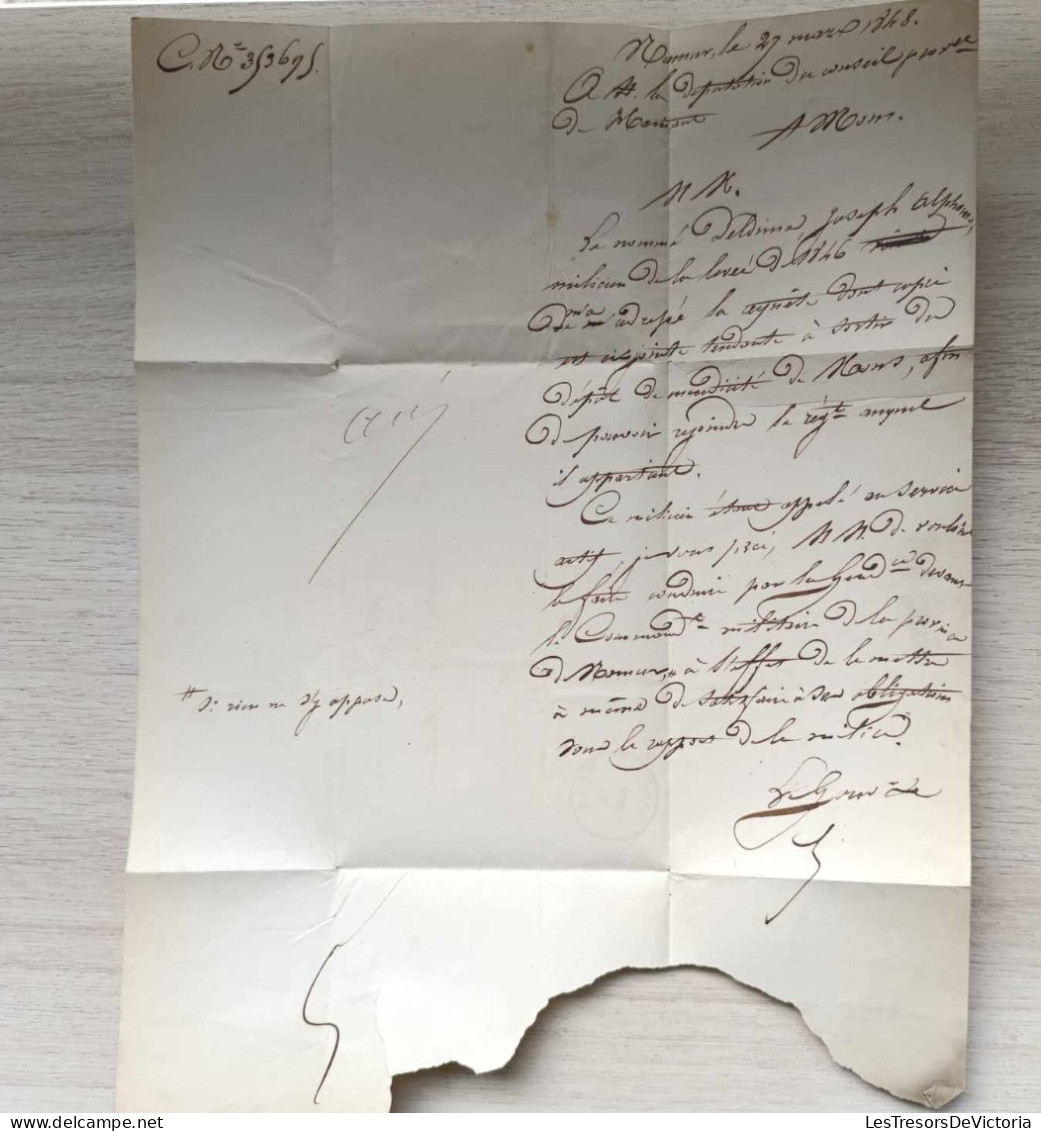 C. Nº 353695.
Namur, le 27 mars 1848.
A M. la députation du conseil provce
de Hainaut
A Mons.
M M.
Le nommé Deldime, Joseph Alphonse,
milicien de la levée de 1846
m'a adressé la requête dont copie
est cijointe tendante à sortir du
dépôt de mendicité de Mons, afin
de pouvoir rejoindre le régt auquel
il appartient.
Ce milicien étant appelé au service
actif, je vous prie, M M. de vouloir
le faire conduire par la Gendie devant
le Commandt militaire de la province
de Namur, # à l'effet de le mettre
à même de satisfaire à ses obligations
sous le rapport de la milice.
# si rien ne s'y oppose,
Le Gouv
LesTresorsDeVictoria